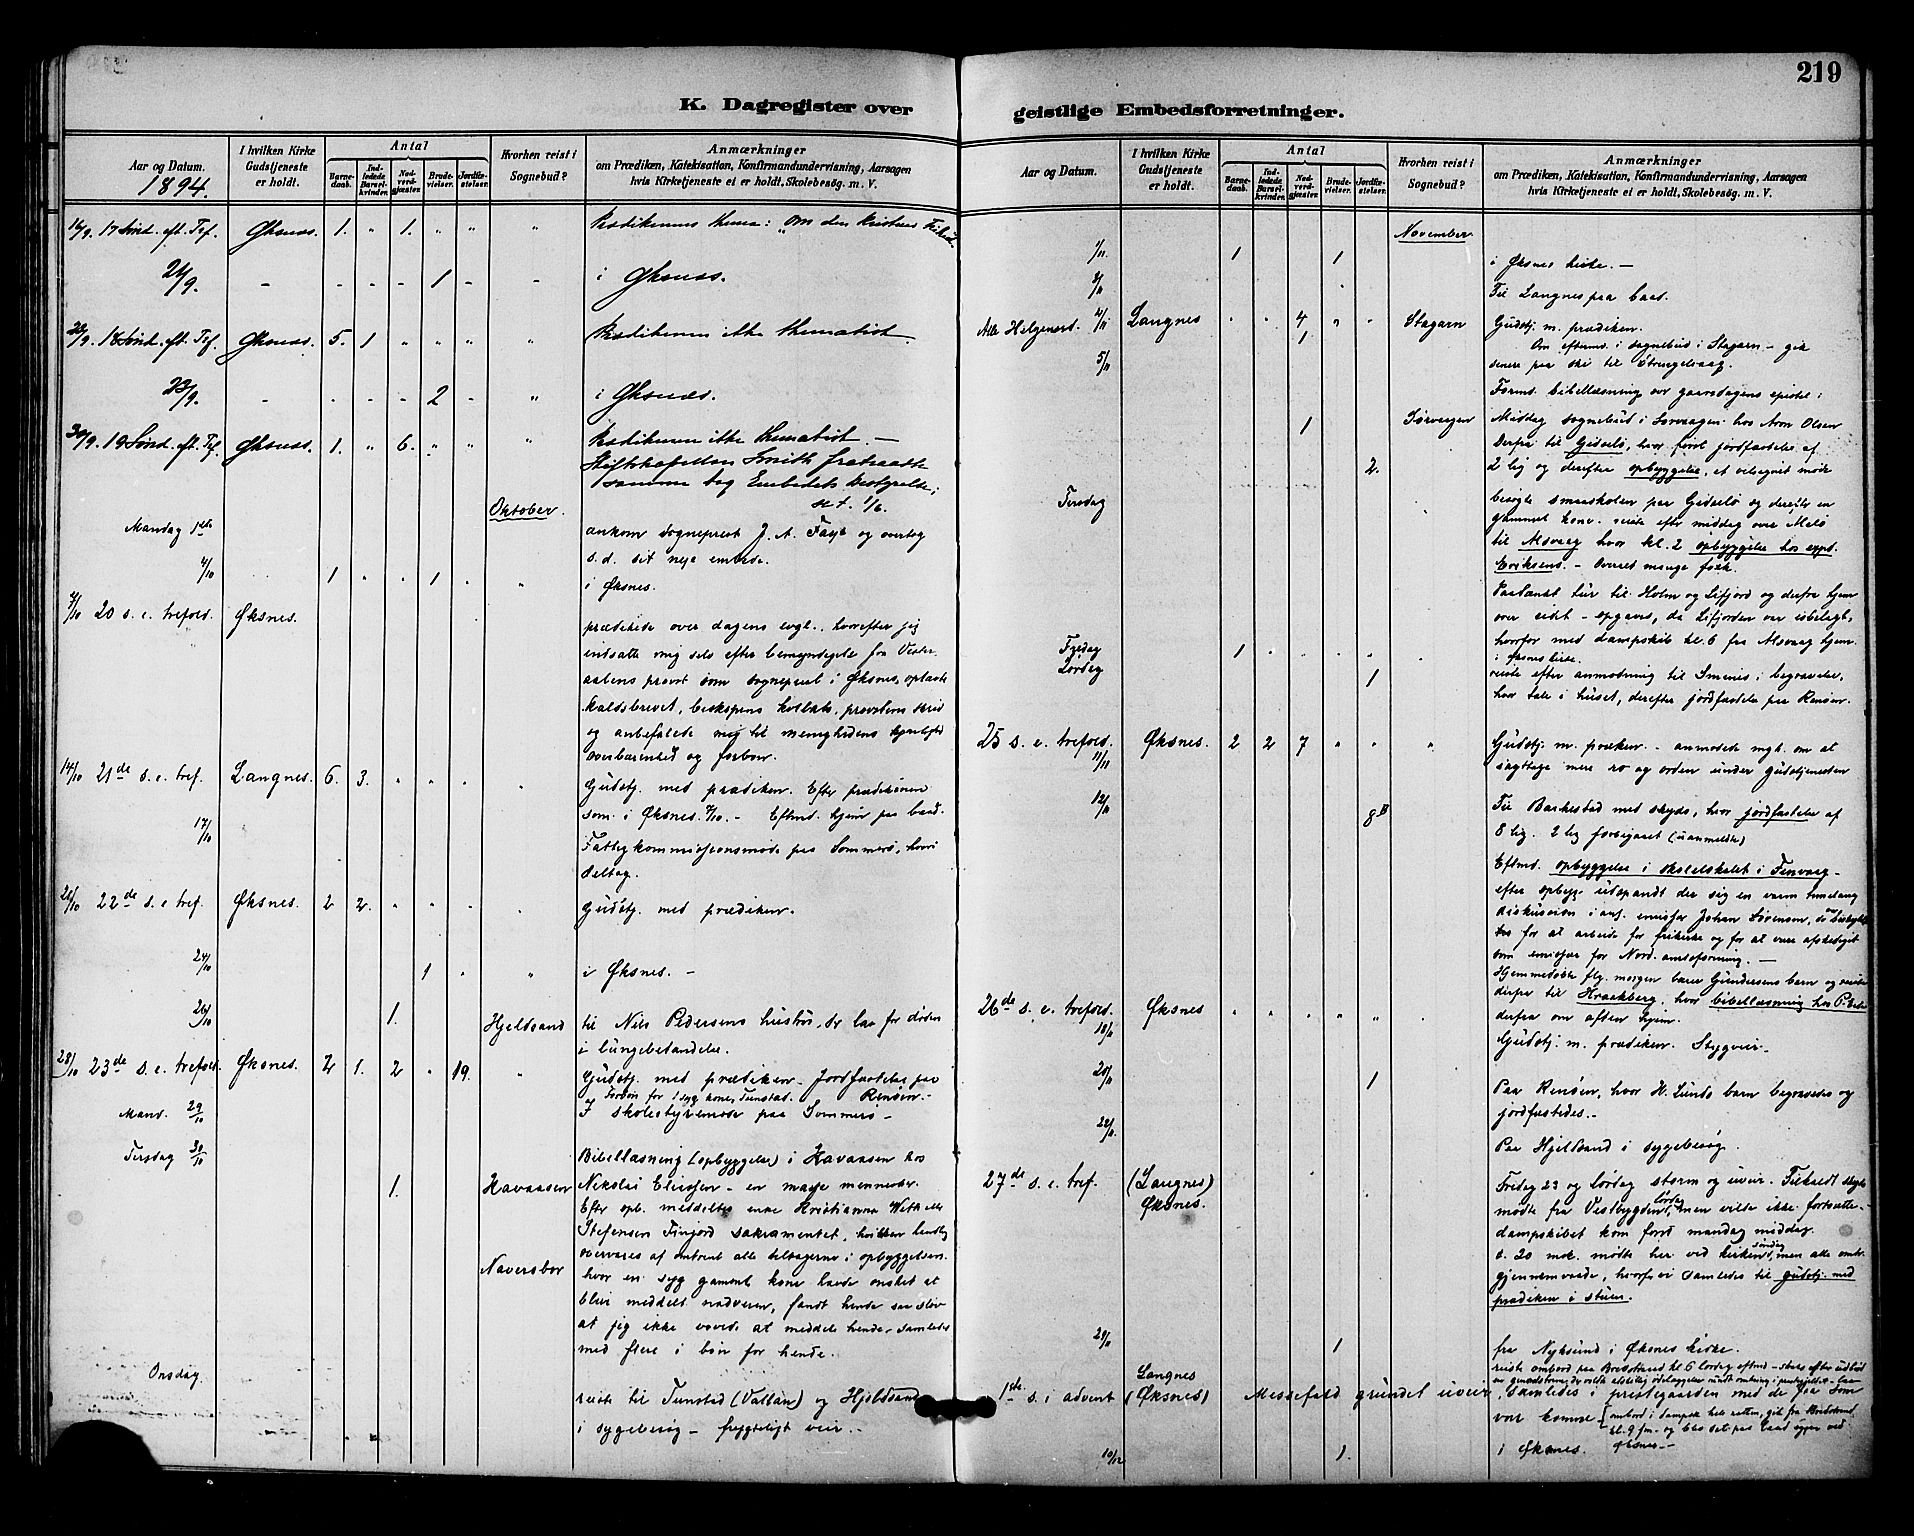 219
K. Dagregister over geistlige Embedsforretninger.
Aar og Datum.
1894.
I hvilken Kirke Gudstjeneste er holdt.
Antal
Barnedaab.
Indledede Barselkvinder.
Nadverdgjæster.
Brudevielser.
Jordfæstelser.
Hvorhen reist i Sognebud?
Anmærkninger
om Prædiken, Katekisation, Konfirmandundervisning, Aarsagen
hvis Kirketjeneste ei er holdt, Skolebesøg. m. V.
16/9. 17 Sønd. eft. Tref. Øksnæs. 1. " 1. " " " Prædikenens thema: "Om den kristnes
21/9. - - - - 1 - - i Øksnæs.
18 Sønd. eft. Tref. Øksnæs. 5. 1 " " " " Prædikenen ikke thematisk.
- - - - 2 - " i Øksnæs.
30/9. 19 Sønd. eft. Tref. Øksnæs. 1. " 6. " " " Prædikenen ikke thematisk. —
Stiftskapellan Smith fratraadte
samme dag Embedets Bestyrelse;
Oktober.
Mandag 1ste ankom sogneprest J. A. Faye og overtog
s. d. sit nye embede.
4/10 1 " " 1 " " i Øksnes.
7/10 20 s. e. trefold. Øksnes. prædikede over dagens evgl., hvorefter jeg
indsatte mig selv efter bemyndigelse fra Vester-
aalens provst som sogneprest i Øksnes, oplæste
kaldsbrevet, biskopens kollats, provstens skriv
og anbefalede mig til menighedens kjærlighed
overbærenhed og forbøn.
14/10 21de s. e. tref. Langnes. 6. 3. " " " Gudstj. med prædiken. Efter prædikenen
som i Øksnes 7/10. — Eftmd. hjem paa baad.
17/10 Fattigkommissionsmøde paa Sommerø, hvori
deltog.
21/10 22de s. e. tref. Øksnes. 2 2. " " " " Gudstj. med prædiken.
24/10 1 " " i Øksnes. —
26/10 1. Hjeldsand til Nils Pedersens hustru, der laa for døden
i lungebetændelse.
28/10 23de s. e. trefold. Øksnes. 2 1. 2 " 19. " Gudstj. med prædiken. Jordfæstelse paa
Forbøn for 1 syg kone, Tunstad. Rensøen.—
Mand. 29/10 I skolestyremøde paa Sommerø —
Tirsdag 30/10 Bibellæsning (opbyggelse) i Havaasen hos
1. Havaasen Nikolai Eliassen — en masse mennesker.
Efter opb. meddeltes enke Kristianna
Stefensen Finjord sakramentet, hvilken
overværes af omtrent alle deltagerne i opbyggelsen.
Naversbor hvor en syg gammel kone havde ønsket at
blive meddelt nadveren, fandt hende saa sløv
at jeg ikke vovede at meddele hende — samledes
med flere i bøn for hende.
Onsdag. reiste til Tunstad (Vallan) og Hjeldsand
i sygebesøg — frygteligt veir. —
Aar og Datum.
I hvilken Kirke Gudstjeneste er holdt.
Antal
Barnedaab.
Indledede Barselkvinder.
Nadverdgjæster.
Brudevielser.
Jordfæstelser.
Hvorhen reist i Sognebud?
Anmærkninger
om Prædiken, Katekisation, Konfirmandundervisning, Aarsagen
hvis Kirketjeneste ei er holdt, Skolebesøg. m. V.
November
1/11. 1 1 i Øksnes kirke. —
3/11 Til Langnes paa baad.
Alle Helgensd. 4/11 Langnes " " 4 " " Stagarn Gudstj. m. prædiken.
1 Om eftermd. i sognebud i Stagarn — gik
5/11 senere paa ski til Strengelvaag.
Formd. bibellæsning over gaarsdagens epistel;
1 Sørvaagen Middag sognebud i Sørvaagen hos Aron Olsen
Derfra til Gidselø, hvor først jordfæstelse af
2. 2 lig og derefter opbyggelse, et velsignet møde
Tirsdag besøgte smaaskolen paa Gidselø og dersteds en
gammel kone. reiste efter middag over Melø
til Alsvaag hvor kl. 2 opbyggelse hos exped.
Eriksens. — Overmaade mange folk.
Paatænkt tur til Holm og Lifjord og derfra hjem
over eidet — opgaves, da Lifjorden var isbelagt,
hvorfor med dampskib kl. 6 fra Alsvaag hjem.
Fredag 1 " " " " " i Øksnes kirke.
Lørdag 1 reiste efter anmodning til Smines i begravelse,
hvor tale i huset, derefter jordfæstelse paa Rensøen.
25 s. e. trefold. 11/11 Øksnes. 2 2 7 " " " Gudstj. m. præken. — anmodede mgh. om at
iagttage mere ro og orden under gudstjenesten
12/11 8 Til Barkestad med skyds, hvor jordfæstelse af
8 lig. 2 lig forbigaaet (uanmeldte)
Eftmd. opbyggelse i skolelokalet i Tinvaag —
efter opbyg. udspandt der sig en varm timelang
diskussion i anl. emissær Johan Sørensen,
for at arbeide for frikirke og for at være afskediget
som emissær for Nord. amtsforening. —
Hjemmedøbte flg. morgen barn Gundersens barn og reiste
derfra til Kraakberg, hvor bibellæsning hos P.
derfra om aften hjem.
26de s. e. trefold. 18/11 Øksnes " " " " " Gudstj. m. prædiken. Stygveir.
20/11 1 Paa Rensøen, hvor H. Lunds barn begravedes og
jordfæstedes. —
22/11 Paa Hjeldsand i sygebesøg.
27de s. e. tref. (Langnes) Øksnes. Fredag 23 og Lørdag storm og uveir. Tilsendt skyds
mødte fra Vestbygden lørdag, men vilde ikke fortsætte —
dampskibet kom først mandag middag.
c. 20 msk. mødte her ved kirken søndag, men alle omtr.
gjennemvaade, hvorfor vi samledes til gudstj. med
prædiken i stuen.
29/11 1 fra Nyksund i Øksnes kirke.
1de s. i advent Langnes (Øksnes) Messefald grundet uveir, samledes i prestegaarden med de faa som
var komne —
10/12 1. i Øksnes.